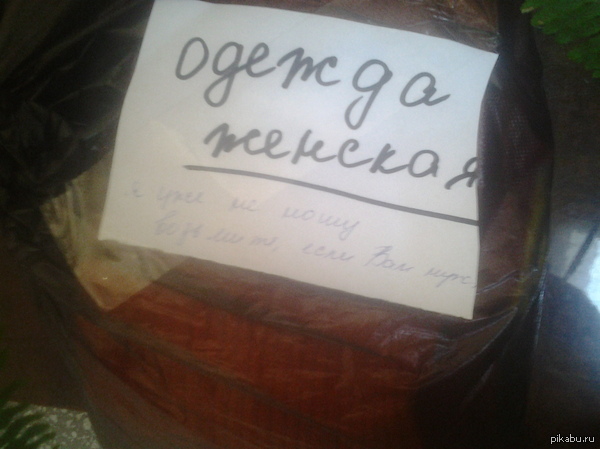 Одежда
женская
я уже не ношу
возьмите, если Вам нуж
pikabu.ru